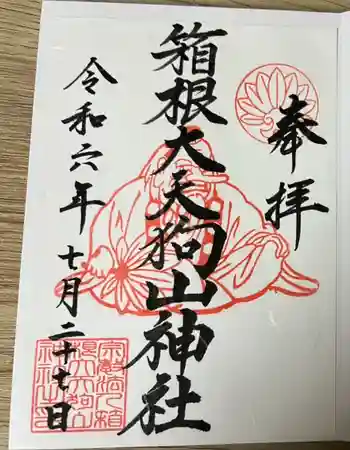 奉拝
箱根大天狗山神社
令和六年七月二十七日